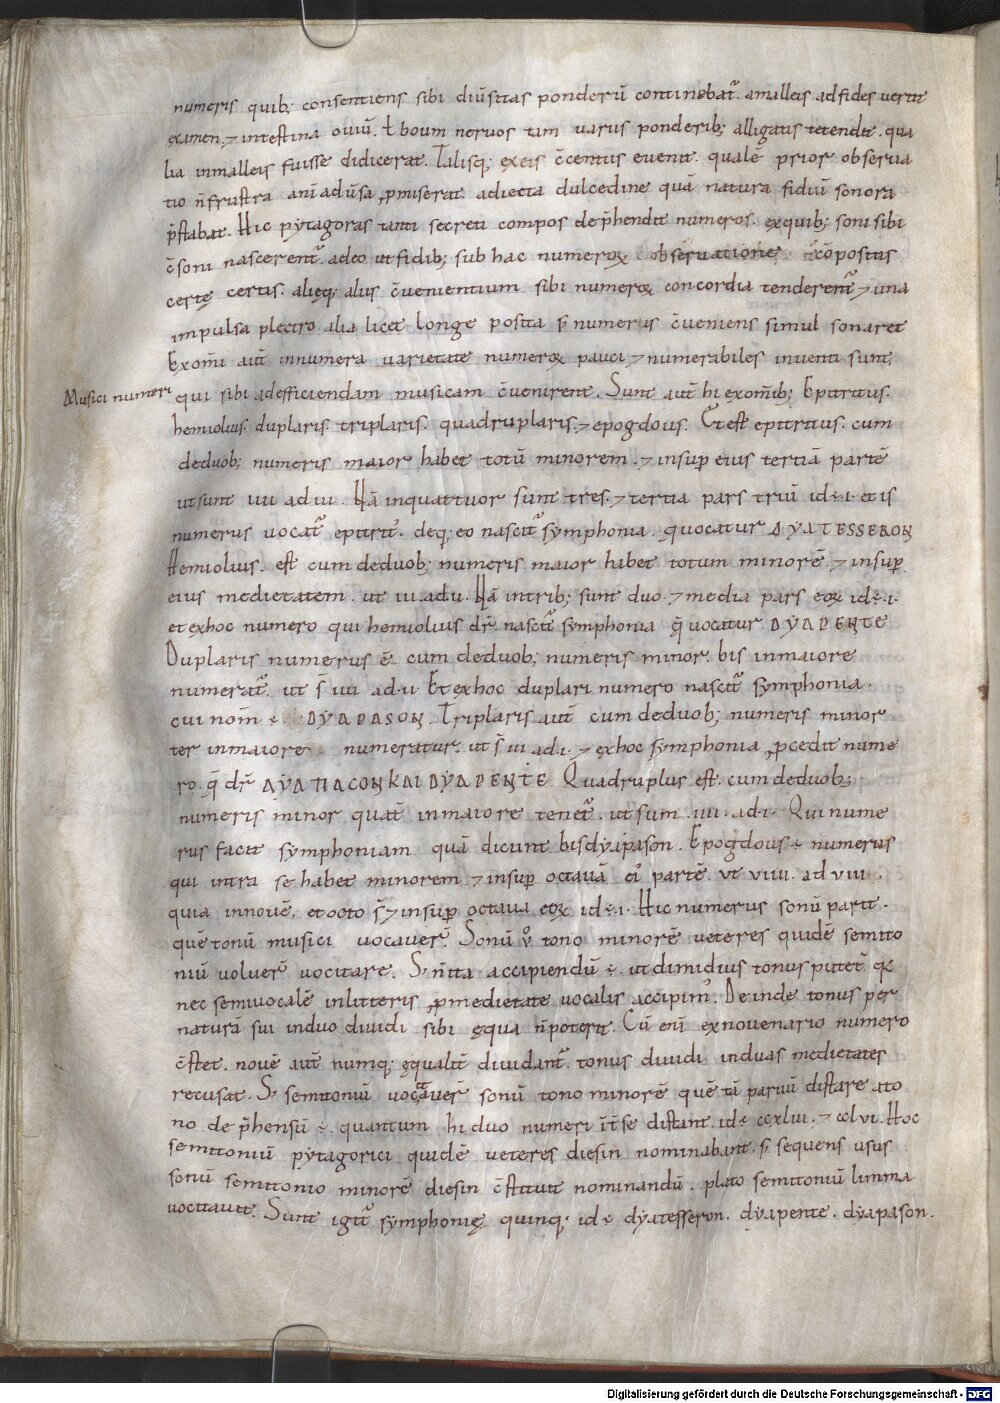 numeris quib; consentiens sibi diūsitas ponderū continebat᷒. amalleis adfides vertit
examen, ⁊ intestina ouiū. ł boum neruos tam uariis ponderib; alligatis tetendit. qua
lia inmalleis fuisse didicerat. Talisq; exeis c̄centus euenit. qualē prior obserua
tio n̄frustra animaduersa ꝓmiserat. adiecta dulcedine quā natura fidiū sonora
p̄stabat. Hic pẏtagoras tanti secreti compos dep̄hendit numeros. exquib; soni sibi
c̄soni nascerent᷒. adeo utfidib; sub hac numeroꝝ obseruatione c̄positis
certę certis. alięq; aliis c̄uenientium sibi numeroꝝ concordia tenderent᷒ ⁊ una
impulsa plectro alia licet longe posita s; numeris c̄ueniens simul sonaret
Exom̄i aut̄ innumera uarietate numeroꝝ pauci ⁊ numerabiles inuenti sunt
Musici numeri
qui sibi adefficiendam musicam c̄uenirent. Sunt aut̄ hi exom̄ib; Epitritus.
hemiolius. duplaris. triplaris. quadruplaris, ⁊ epogdous. Et est epitritus. cum
deduob; numeris maior habet totū minorem. ⁊ insuꝑ eius tertiā partē
utsunt iiii ad iii. Nā inquattuor sunt tres, ⁊ tertia pars triū id÷ ·i· et is
numerus uocat᷒ epitrit᷒. deq; eo nascit᷒ sẏmphonia. q̄uocatur DẎATESSERON
Hemiolius. est cum deduob; numeris maior habet totum minorē. ⁊ insuꝑ
eius medietatem. ut iii. ad ii. Nā intrib; sunt duo. ⁊ media pars eoꝝ id÷ ·i·
et exhoc numero qui hemiolius dr̄. nascit᷒ sẏmphonia q̄ uocatur DẎAPENTE
Duplaris numerus ē. cum deduob; numeris minor bis inmaiore
numerat᷒. ut s̄ iiii ad ·ii· Et exhoc duplari numero nascit᷒ sẏmphonia.
cui nom̄ ÷ DẎAPASON. Triplaris aut̄ cum deduob; numeris minor
ter inmaiore numeratur. ut s̄ iii ad ·i· ⁊ exhoc sẏmphonia ꝓcedit nume
ro. q̄ dr̄ DẎA ΠACON KAI DẎAPENTE. Quadruplus est. cum deduob;
numeris minor quat̄ inmaiore tenet᷒. ut sunt ·iiii· ad ·i· Qui nume
rus facit sẏmphoniam quā dicunt bisdẏapason. Epogdous ÷ numerus
qui intra se habet minorem. ⁊ insuꝑ octauā ei᷒ partē. ut viiii. ad viii·.
quia innouē. et octo s̄ ⁊ insuꝑ octaua eoꝝ id÷ ·i· Hic numerus sonū parit.
quē tonū musici uocauer̄. Sonū v̊ tono minorē ueteres quidē semito
niū uoluer̄ uocitare. S; n̄ita accipiendū ÷. ut dimidius tonus putet᷒. qꝛ
nec semiuocalē inlitteris ꝓmedietate uocalis accipim᷒. Deinde tonus per
naturā sui induo diuidi sibi ęqua n̄poterit. Cū eni exnouenario numero
c̄stet. nouē aut̄ numq; ęqualit̄ diuidant᷒. tonus diuidi induas medietates
recusat. S; semitoniū uocitauer̄ sonū tono minorē quē tā paruū distare ato
no dep̄hensū ÷. quantum hi duo numeri int̄ se distant. id÷ ccxliii. ⁊ cclvi. Hoc
semitoniū pẏtagorici quidē ueteres diesin nominabant. s; sequens usus
sonū semitonio minorē diesin c̄stituit nominandū. plato semitoniū limma
uocitauit. Sunt igit᷒ sẏmphonię quinq;. id÷ dẏatesseron. dẏapente. dẏapason.
Digitalisierung gefördert durch die Deutsche Forschungsgemeinschaft - DFG